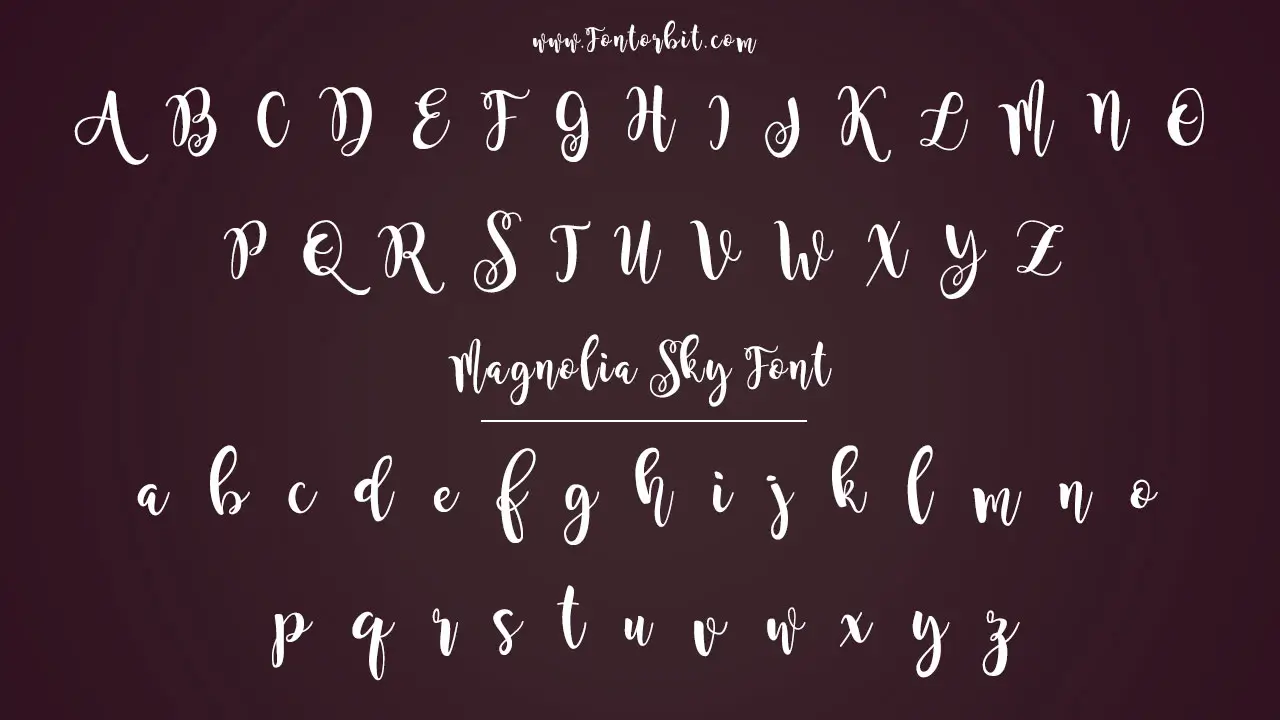 www.Fontorbit.com
A B C D E F G H I J K L M N O
P Q R S T U V W X Y Z
Magnolia Sky Font
a b c d e f g h i j k l m n o
p q r s t u v w x y z